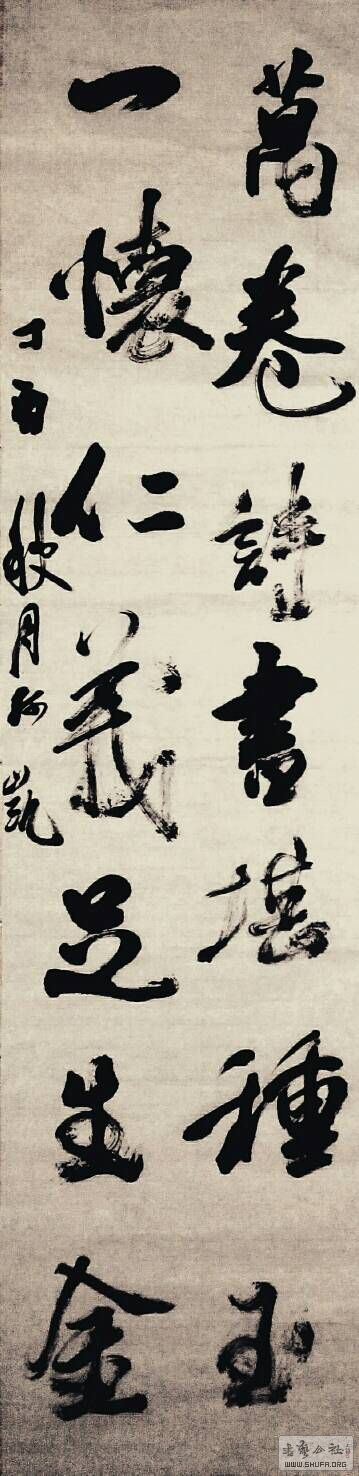 萬卷詩書堪種玉
一懷仁義足生金
丁酉秋月 凱
書藝公社
WWW.SHUFA.ORG